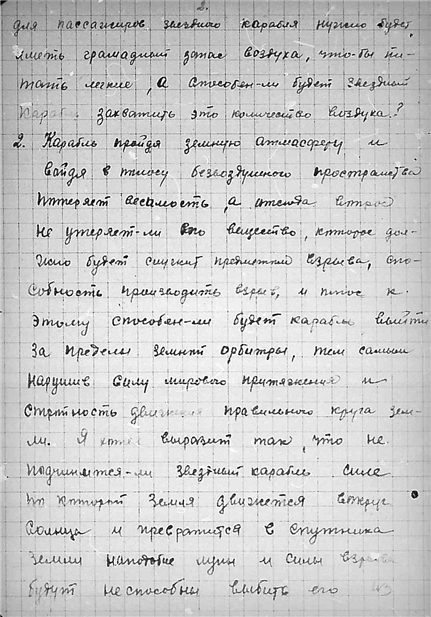 2.
для пассажиров звездного карабля нужно будет
иметь грамадный запас воздуха, что-бы пи-
тать легкие, а способен-ли будет звездный
карабль захватить это количество воздуха?
2. Карабль пройдя земную атмасферу и
войдя в полосу безвоздушного пространства
потеряет весамость, а отсюда второе
не утеряет-ли его вещество, которое дол-
жно будет служит предметом взрыва, спо-
собность производить взрыв, и плюс к
этому способен-ли будет карабль выйти
за пределы земной орбитры, тем самым
нарушив силу мирового притяжения и
стройность движения правильного круга зем-
ли. Я хотел выразит так, что не
подчинится-ли звездный карабль силе
по которой земля движется вокруг
солнца и превратится в спутника
земли наподобие луны и силы взрыва
будут неспособны выбить его из